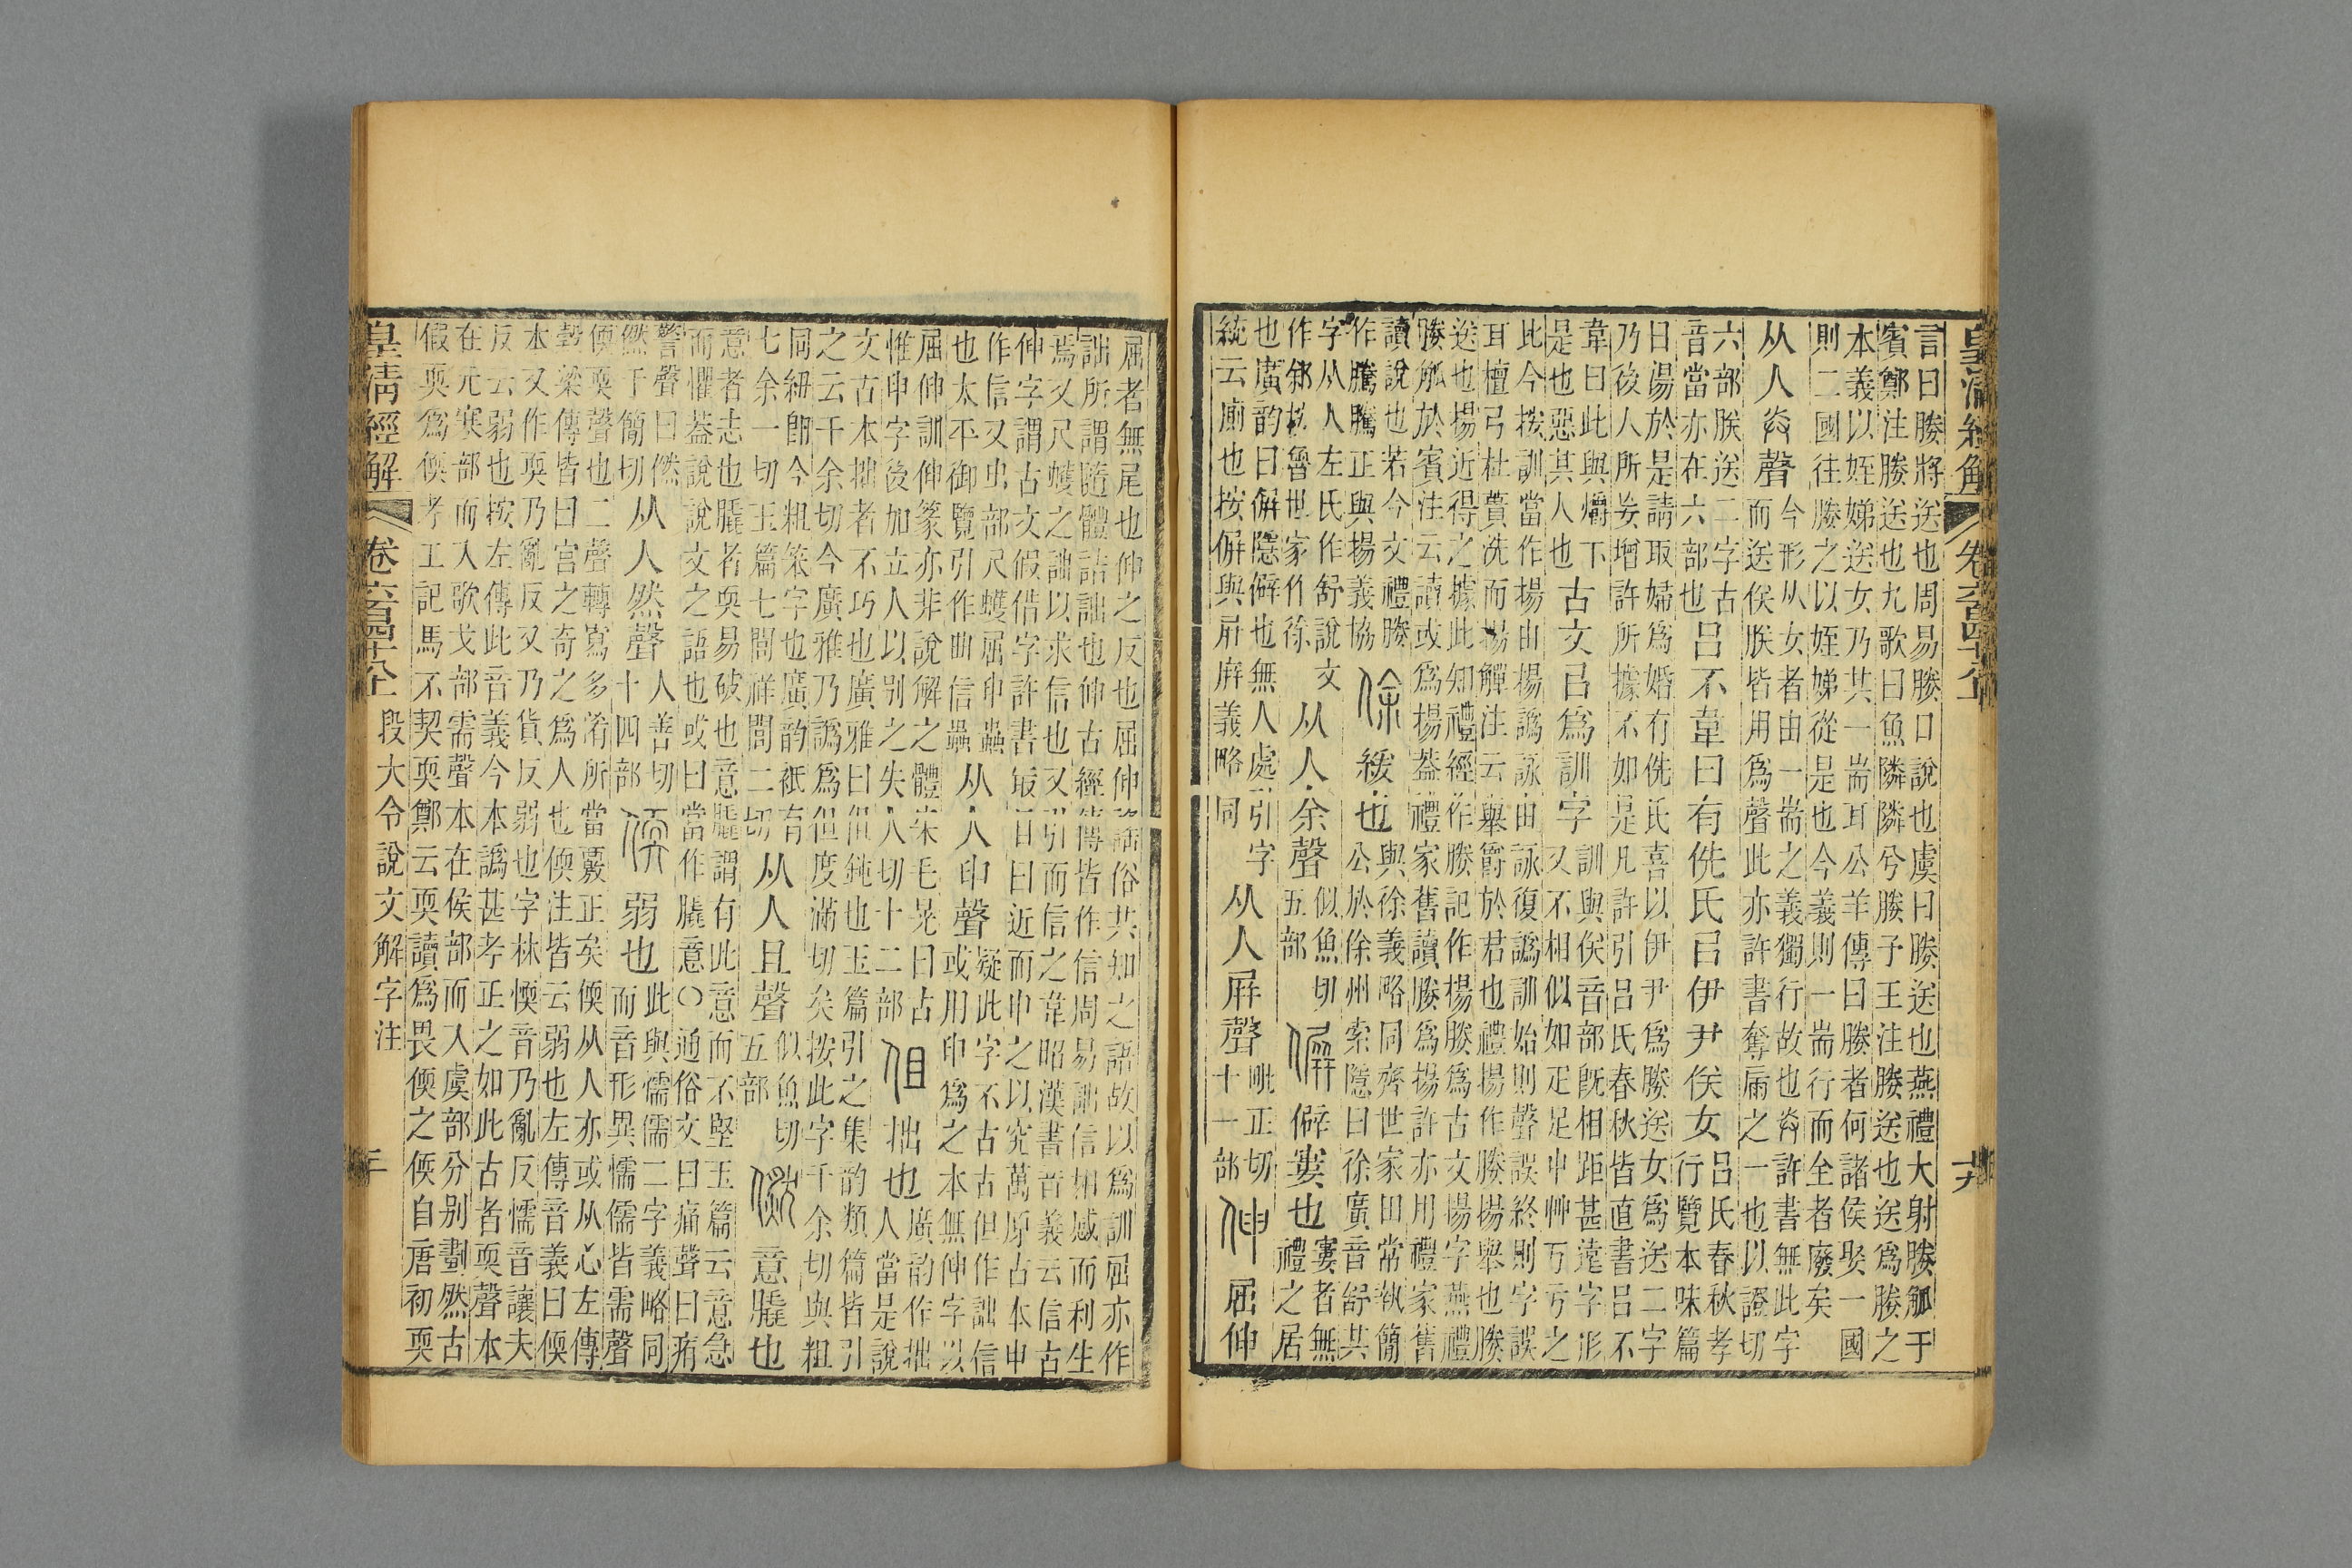 皇清經解 卷六百四十八上
言曰媵將送也周易媵口說也虞曰媵送也燕禮大射媵觚于
賓鄭注媵送也九歌曰魚隣隣兮媵予王注媵送也送爲媵之
本義以姪娣送女乃其一耑耳公羊傳曰媵者何諸侯娶一國
則二國往媵之以姪娣從是也今義則一耑行而全者廢矣
从人灷聲 今形从女者由一耑之義獨行故也灷許書無此字
而送佚朕皆用爲聲此亦許書奪屚之一也以證切
六部朕送二字古
音當亦在六部也 呂不韋曰有侁氏㠯伊尹佚女 呂氏春秋孝
行覽本味篇
曰湯於是請取婦爲婚有侁氏喜以伊尹爲媵送女爲送二字
乃後人所妄增許所據不如是凡許引呂氏春秋皆直書呂不
韋曰此與爝下
是也惡其人也 古文㠯爲訓字 訓與佚音部旣相距甚遠字形
又不相似如疋足屮艸丂亏之
比今按訓當作揚由揚譌詠由詠復譌訓始則聲誤終則字誤
耳檀弓杜蕢洗而揚觶注云舉爵於君也禮揚作媵揚舉也媵
送也揚近得之據此知禮經作媵記作揚媵爲古文揚字燕禮
媵觚於賓注云讀或爲揚葢禮家舊讀媵爲揚許亦用禮家舊
讀說也若今文禮媵
作騰騰正與揚義協 俆 緩也 與徐義略同齊世家田常執簡
公於俆州索隱曰徐廣音舒其
字从人左氏作舒說文
作䣄 魯世家作徐 从人余聲 似魚切
五部 僻 僻寠也 寠者無
禮之居
也廣韵曰僻隱僻也無人處引字
統云廁也按僻與屛庰義略同 从人屛聲 毗正切
十一部 伸 屈伸
屈者無尾也伸之反也屈伸疊俗共知之語故以爲訓屈亦作
詘所謂隨體詰詘也伸古經傳皆作信周易詘信相感而利生
焉又尺蠖之詘以求信也又引而信之韋昭漢書音義云信古
伸字謂古文假借字許書㝡目曰近而申之以究萬原古本申
作信又虫部尺蠖屈申蟲
也太平御覽引作曲信蟲 从人申聲 疑此字不古古但作詘信
或用申爲之本無伸字以
屈伸訓伸篆亦非說解之體宋毛晃曰古
惟申字後加立人以別之失人切十二部 伹 拙也 廣韵作拙
人當是說
文古本拙者不巧也廣雅曰伹鈍也玉篇引之集韵類篇皆引
之云千余切今廣雅乃譌爲但度滿切矣按此字千余切與粗
同紐卽今粗笨字也廣韵祇有
七余一切玉篇七閭祥閭二切 从人且聲 似魚切
五部 㒄 意膬也
意者志也膬者耎易破也意膬謂有此意而不堅玉篇云意急
而懼葢說說文之語也或曰當作膬意○通俗文曰痛聲曰㾗
警聲曰㒄
㒄于簡切 从人然聲 人善切
十四部 偄 弱也 此與懦儒二字義略同
而音形異懦儒皆需聲
偄耎聲也二聲轉寫多淆所當覈正矣偄从人亦或从心左傳
㲄梁傳皆曰宮之奇之爲人也偄注皆云弱也左傳音義曰偄
本又作耎乃亂反又乃貨反弱也字林愞音乃亂反懦音讓夫
反云弱也按左傳此音義今本譌甚考正之如此古者耎聲本
在元寒部而入歌戈部需聲本在侯部而入虞部分別劃然古
假耎爲偄考工記馬不契耎鄭云耎讀爲畏偄之偄自唐初耎
皇清經解 卷六百四十八上 段大令說文解字注